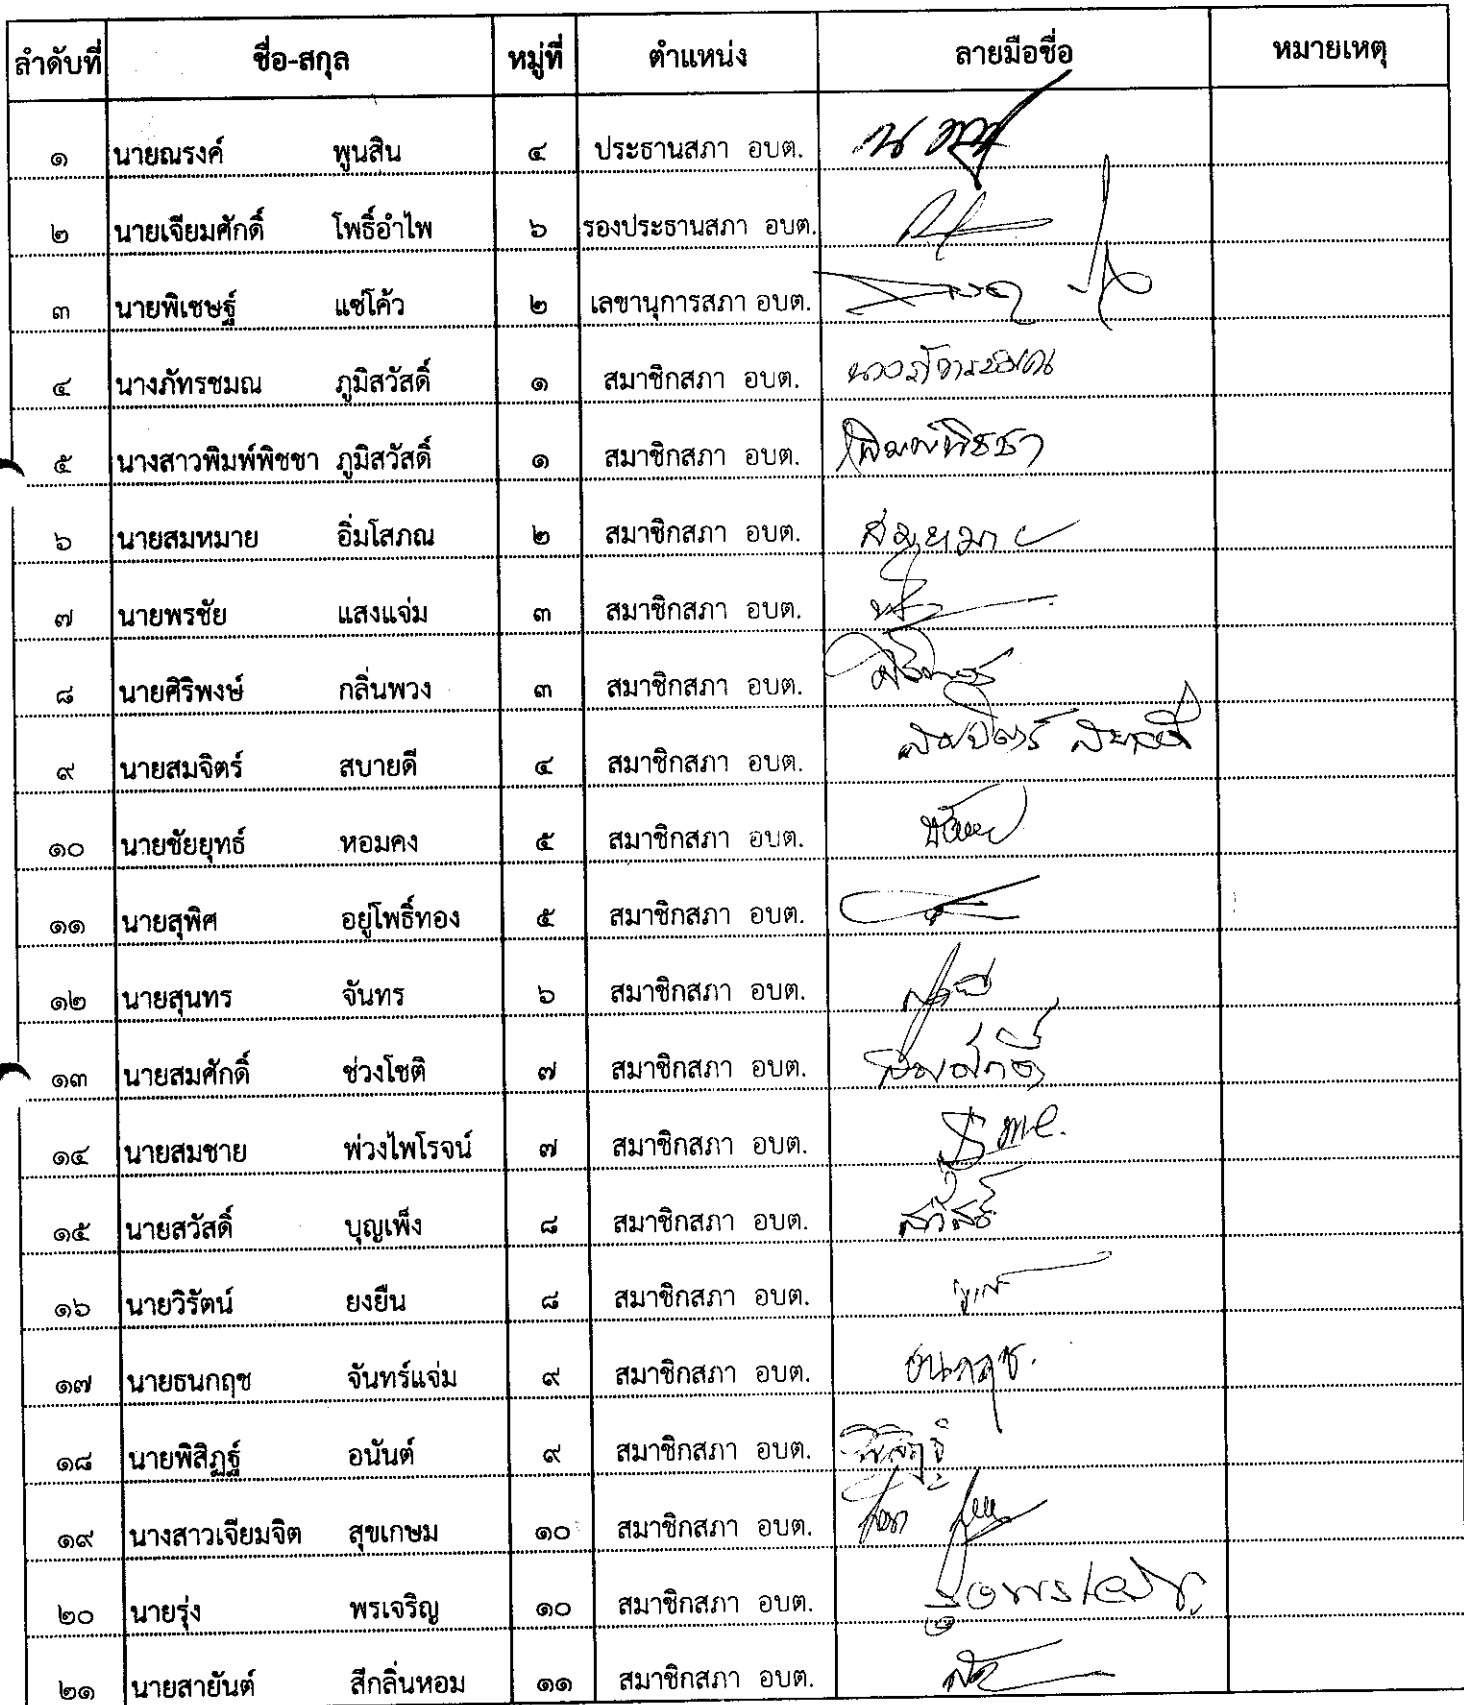 ลำดับที่ ชื่อ-สกุล หมู่ที่ ตำแหน่ง ลายมือชื่อ หมายเหตุ
๑ นายณรงค์ พูนสิน ๔ ประธานสภา อบต.
๒ นายเจียมศักดิ์ โพธิ์อำไพ ๖ รองประธานสภา อบต.
๓ นายพิเชษฐ์ แซ่โค้ว ๒ เลขานุการสภา อบต.
๔ นางภัทรชมณ ภูมิสวัสดิ์ ๑ สมาชิกสภา อบต.
๕ นางสาวพิมพ์พิชชา ภูมิสวัสดิ์ ๑ สมาชิกสภา อบต. พิมพ์พิชชา
๖ นายสมหมาย อิ่มโสภณ ๒ สมาชิกสภา อบต. สมหมาย
๗ นายพรชัย แสงแจ่ม ๓ สมาชิกสภา อบต.
๘ นายศิริพงษ์ กลิ่นพวง ๓ สมาชิกสภา อบต.
๙ นายสมจิตร์ สบายดี ๔ สมาชิกสภา อบต. สมจิตร์ สบายดี
๑๐ นายชัยยุทธ์ หอมคง ๕ สมาชิกสภา อบต.
๑๑ นายสุพิศ อยู่โพธิ์ทอง ๕ สมาชิกสภา อบต.
๑๒ นายสุนทร จันทร ๖ สมาชิกสภา อบต.
๑๓ นายสมศักดิ์ ช่วงโชติ ๗ สมาชิกสภา อบต. สมศักดิ์
๑๔ นายสมชาย พ่วงไพโรจน์ ๗ สมาชิกสภา อบต.
๑๕ นายสวัสดิ์ บุญเพ็ง ๘ สมาชิกสภา อบต. สวัสดิ์
๑๖ นายวิรัตน์ ยงยืน ๘ สมาชิกสภา อบต.
๑๗ นายธนกฤช จันทร์แจ่ม ๙ สมาชิกสภา อบต. ธนกฤช.
๑๘ นายพิสิฏฐ์ อนันต์ ๙ สมาชิกสภา อบต.
๑๙ นางสาวเจียมจิต สุขเกษม ๑๐ สมาชิกสภา อบต.
๒๐ นายรุ่ง พรเจริญ ๑๐ สมาชิกสภา อบต.
๒๑ นายสายันต์ สีกลิ่นหอม ๑๑ สมาชิกสภา อบต.